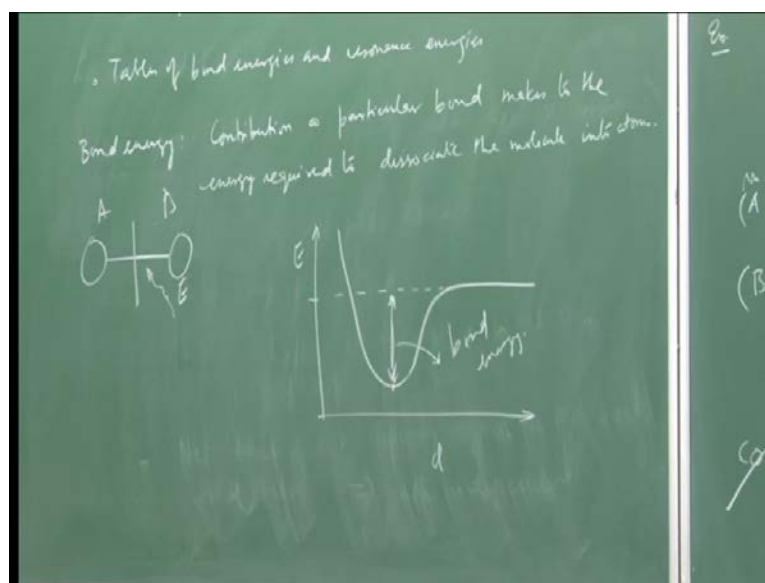 . Tables of bond energies and resonance energies
Bond energy: Contribution a particular bond makes to the
energy required to dissociate the molecule into atoms.
A B
E
E
bond
energy.
d
(A
(B